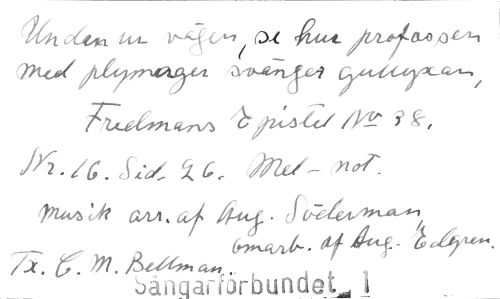 Undan ur vägen, se hur profossen
med plymager svänger gullyxan,
Fredmans Epistel No 38.
Nr. 16. Sid. 26. Mel-not.
Musik arr. af Aug. Söderman,
omarb. af Aug. Edgren.
Tx. C. M. Bellman.
Sångarförbundet 1